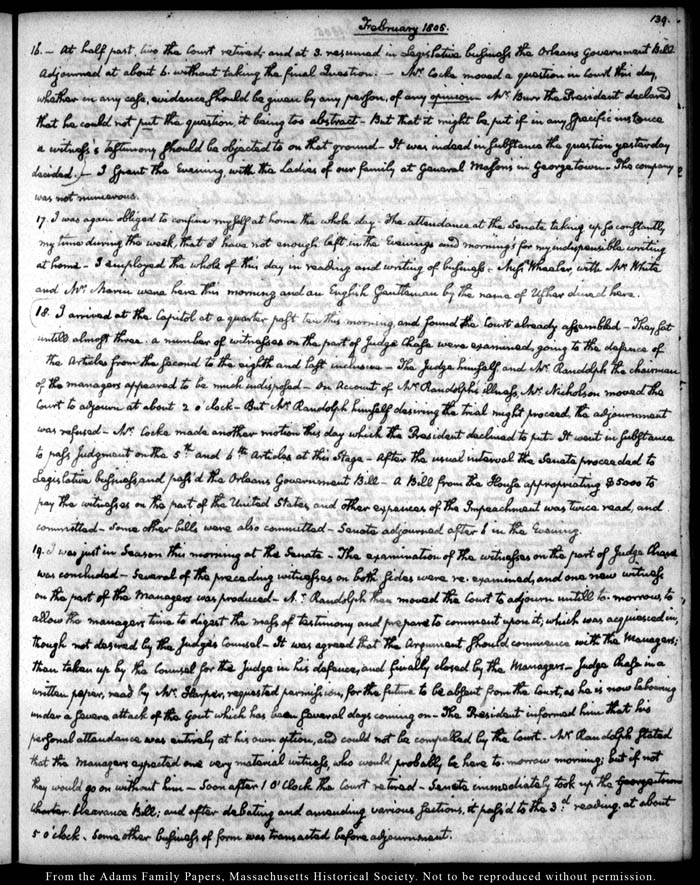 February 1805.
139.
16. – At half past, two the Court retired, and at 3. resumed in Legislative business the Orleans Government Bill
Adjourned at about 6. without taking the final Question. – Mr. Cocke moved a question in Court this day,
whether in any case, evidence should be given by any person, of any opinion – Mr. Burr the President declared
that he could not put the question, it being too abstract – But that it might be put if in any specific instance
a witness's testimony should be objected to on that ground – It was indeed in substance the question yesterday
decided.) – I spent the Evening, with the Ladies of our family at General Masons in Georgetown – The company
was not numerous.
17. I was again obliged to confine myself at home the whole day – The attendance at the Senate taking up so constantly
my time during the week, that I have not enough left in the Evenings and mornings for my indispensible writing
at home – I employed the whole of this day in reading and writing of business – Miss Wheeler, with Mr. White
and Mr. were here this morning and an English Gentleman by the name of Usher dined here.
18. I arrived at the Capitol at a quarter past ten this morning, and found the Court already assembled – They sat
untill almost three. a number of witnesses on the part of Judge Chase were examined, going to the defence of
the Articles from the second to the eighth and last inclusive – The Judge himself, and Mr. Randolph the chairman
of the managers appeared to be much indisposed – On Account of Mr. Randolph's illness, Mr. Nicholson moved the
Court to adjourn at about 2 o'clock – But Mr. Randolph himself desiring the trial might proceed, the adjournment
was refused – Mr. Cocke made another motion this day which the President declined to put – It went in substance
to pass Judgment on the 5th and 6th Articles at this Stage – After the usual interval the Senate proceeded to
Legislative business, and pass'd the Orleans Government Bill – A Bill from the House appropriating $5000 to
pay the witnesses on the part of the United States, and other expences of the Impeachment was twice read, and
committed – Some other bills, were also committed – Senate adjourned after 6 in the Evening.
19. I was just in Season this morning at the Senate – The examination of the witnesses on the part of Judge Chase
was concluded – Several of the preceding witnesses on both sides were re-examined, and one new witness
on the part of the Managers was produced – Mr. Randolph then moved the Court to adjourn untill to-morrow, to
allow the managers time to digest the mass of testimony and prepare to comment upon it, which was acquiesced in,
though not desired by the Judge's Counsel – It was agreed that the Argument should commence with the Managers;
then taken up by the Counsel for the Judge in his defence, and finally closed by the Managers – Judge Chase in a
written paper, read by Mr. Harper, requested permission, for the future to be absent from the Court, as he is now labouring
under a severe attack of the Gout which has been several days coming on – The President informed him that his
personal attendance was entirely at his own option, and could not be compelled by the Court – Mr. Randolph stated
that the Managers expected one very material witness, who would probably be here to-morrow morning; but if not
they would go on without him – Soon after 1 O'Clock the Court retired – Senate immediately took up the Georgetown
Clearance Bill; and after debating and amending various sections, it pass'd to the 3d reading, at about
5 o'clock. Some other business of form was transacted before adjournment.
From the Adams Family Papers, Massachusetts Historical Society. Not to be reproduced without permission.